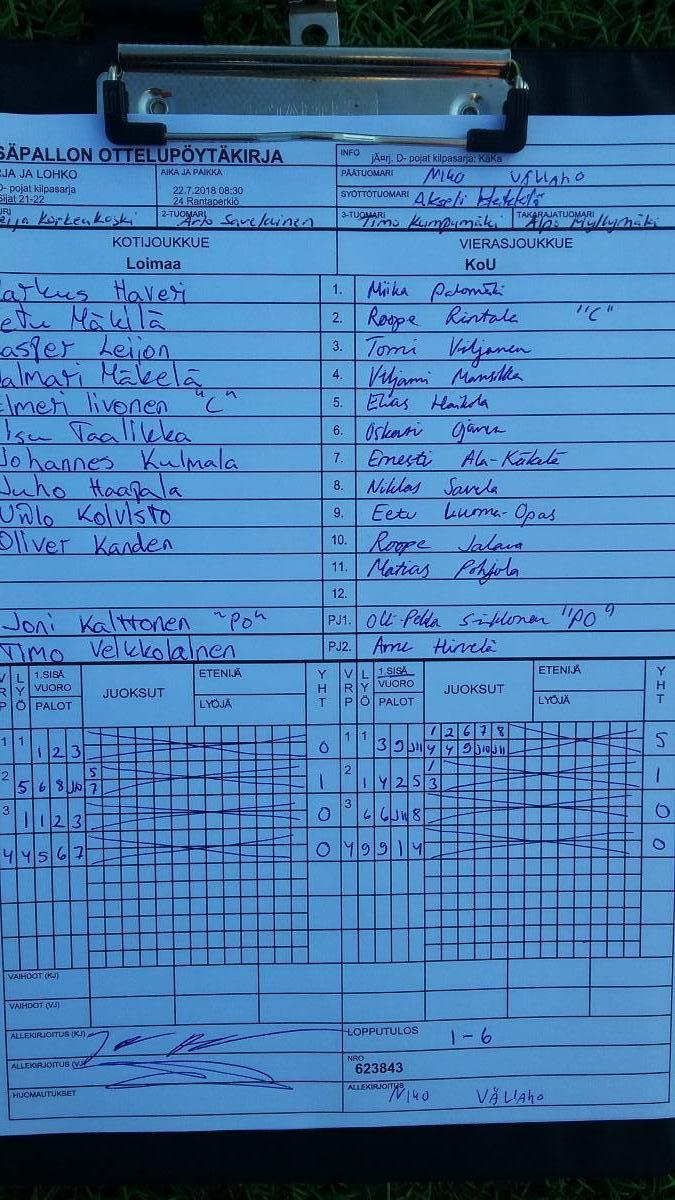 SÄPALLON OTTELUPÖYTÄKIRJA
INFO jÄ¤rj. D- pojat kilpasarja: KaKa
RJA JA LOHKO
D- pojat kilpasarja
Sijat 21-22
AIKA JA PAIKKA
22.7.2018 08:30
24 Rantaperkiö
PÄÄTUOMARI Niko Väliaho
SYÖTTÖTUOMARI Akseli
2-TUOMARI Arto Savelainen
3-TUOMARI Timo Kumpumäki
TAKARAJATUOMARI Alpo Myllymäki
KOTIJOUKKUE VIERASJOUKKUE
Loimaa KoU
arkus Haveri 1. Miika Palomäki
etu Mäkilä 2. Roope Rintala "C"
asper Leijon 3. Tomi Viljanen
almari Mäkelä 4. Viljami Mansikka
Elmeri Iivonen "C" 5. Elias
Taalikka 6. Oskari Ojanen
Johannes Kulmala 7. Ernesti Ala-Käkelä
Juho Haapala 8. Niklas Savela
Koivisto 9. Eetu Luoma-Opas
Oliver Kanden 10. Roope Jalava
11. Matias Pohjola
12.
Joni Kalttonen "PO" PJ1. Olli-Pekka "PO"
Timo Veikkolainen PJ2. Arne Hirvelä
VRP LYÖ 1.SISÄ VUORO PALOT JUOKSUT ETENIJÄ LYÖJÄ YHT VRP LYÖ 1.SISÄ VUORO PALOT JUOKSUT ETENIJÄ LYÖJÄ YHT
1 1 1 2 3 0 1 1 3 9 J11 1 2 6 7 8 5
4 4 9 J10 J11
2 5 6 8 J10 5 1 2 1 4 2 5 1 1
7 3
3 1 1 2 3 0 3 6 6 J11 8 0
4 4 5 6 7 0 4 9 9 1 4 0
VAIHDOT (KJ)
VAIHDOT (VJ)
ALLEKIRJOITUS (KJ)
LOPPUTULOS 1-6
ALLEKIRJOITUS (VJ)
NRO
623843
HUOMAUTUKSET
ALLEKIRJOITUS Niko VÄLIAHO